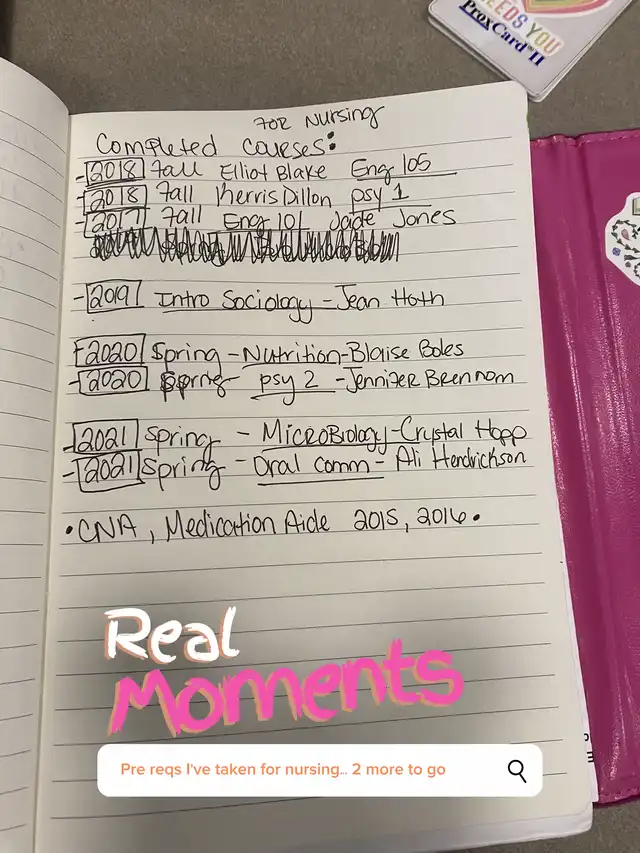 NEEDS YOU
ProxCard II
FOR NURSING
Completed Courses:
- 2018 Fall Elliot Blake Eng 105
- 2018 Fall Kerris Dillon psy 1
2017 Fall Eng 101 Jaide Jones
- 2019 Intro Sociology - Jean Hoth
- 2020 Spring - Nutrition - Blaise Boles
- 2020 Spring - psy 2 - Jennifer Brennom
- 2021 Spring - MicroBiology - Crystal Hopp
- 2021 Spring - Oral Comm - Ali Hendrickson
• CNA, Medication Aide 2015, 2016 •
Real
Moments
Pre reqs I've taken for nursing... 2 more to go